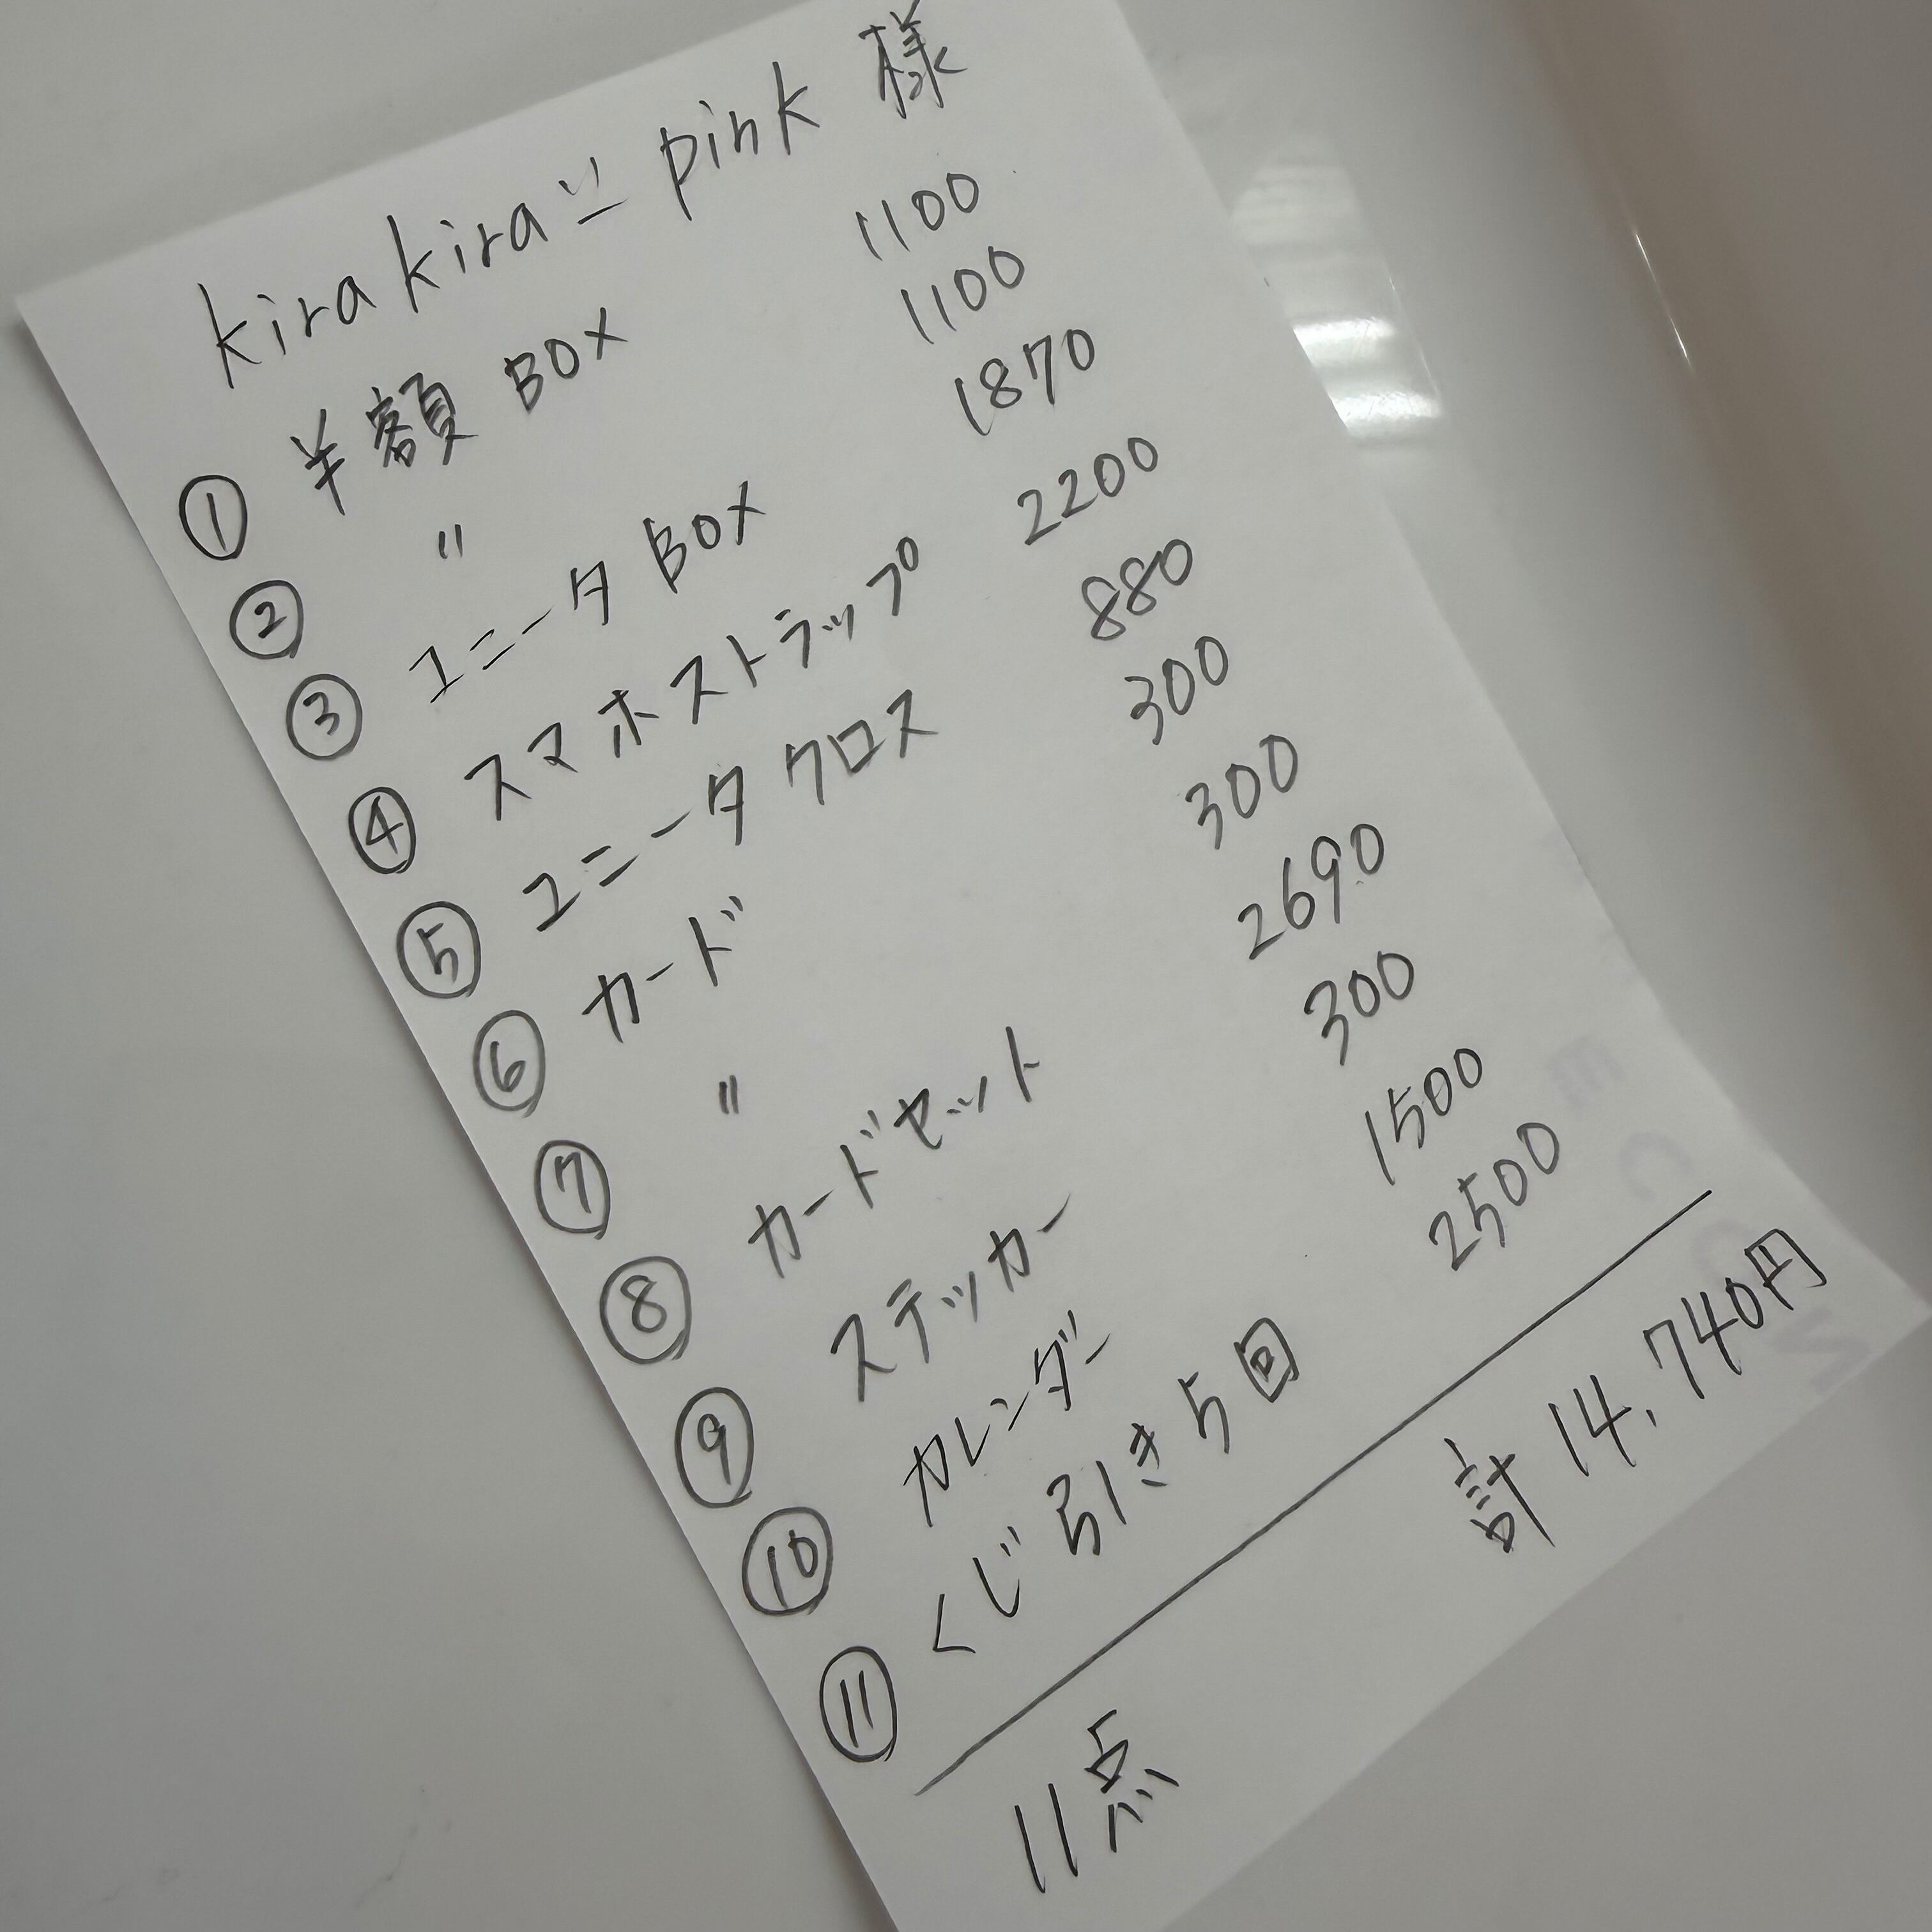 kirakira〃pink 様
① 半額 BOX 1100
② 〃 1100
③ ユニータ BOX 1870
④ スマホストラップ 2200
⑤ ユニータクロス 880
⑥ カード 300
⑦ 〃 300
⑧ カードセット 2690
⑨ ステッカー 300
⑩ カレンダー 1500
⑪ くじ引き5回 2500
計 14,740円
11点